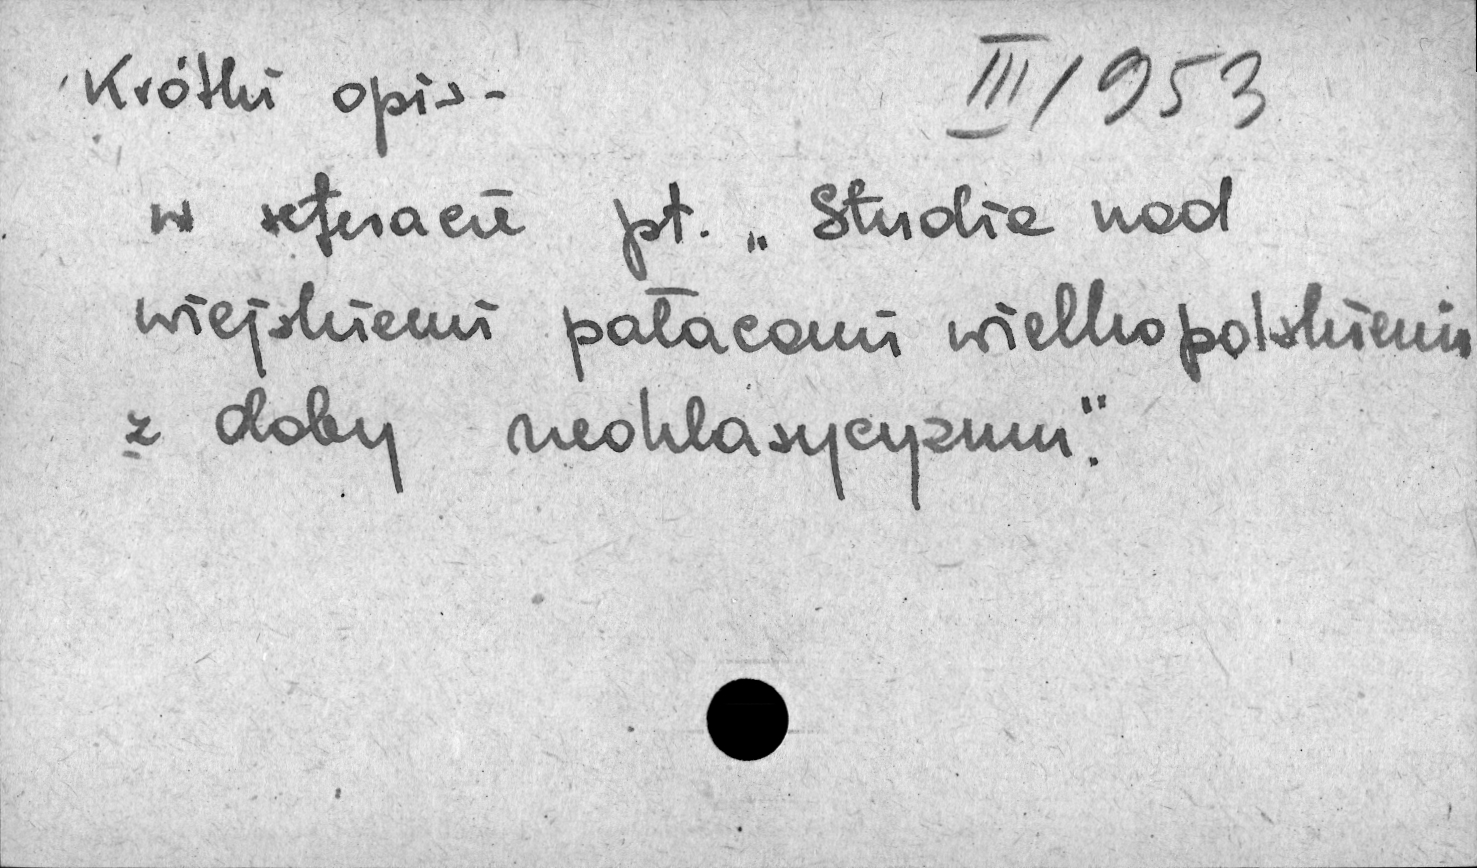 Krótki opis - III/953
w referacie pt. „Studia nad
wiejskiemi pałacami wielkopolskiemi
z doby neoklasycyzmu".